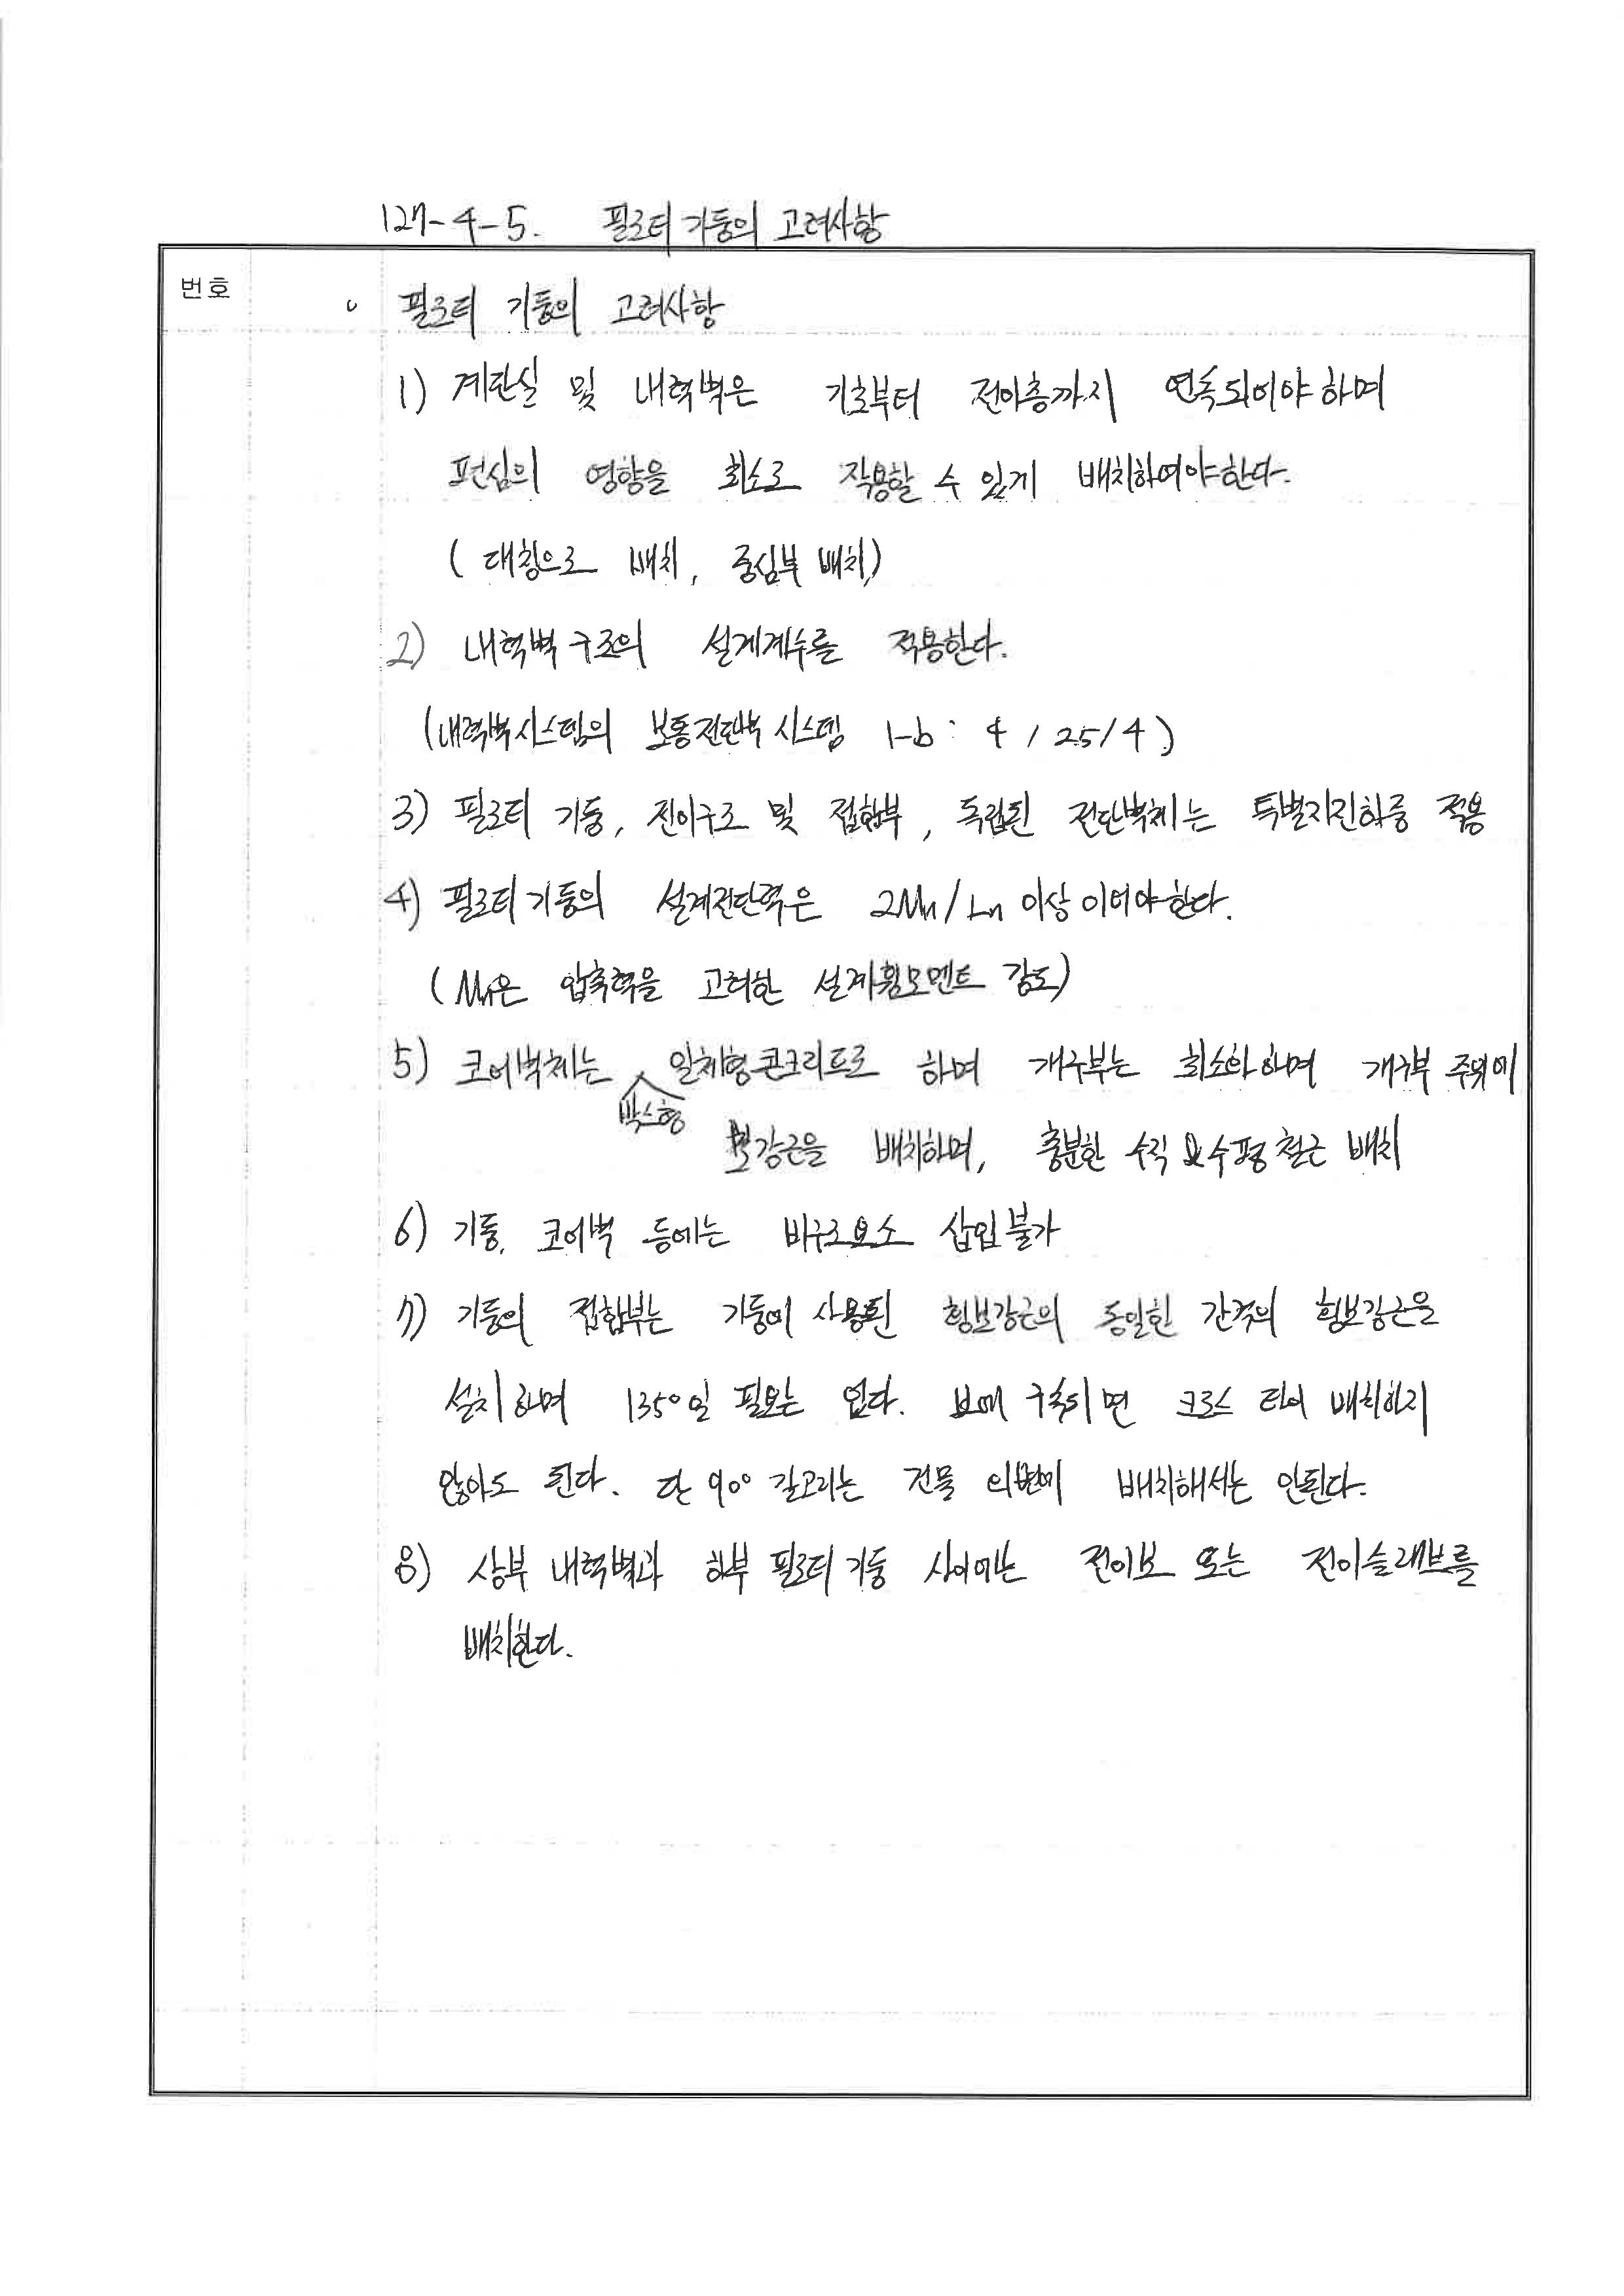 127-4-5. 필로티 기둥의 고려사항
번호
o 필로티 기둥의 고려사항
1) 계단실 및 내력벽은 기초부터 전이층까지 연속되어야하며
편심의 영향을 최소로 작용할 수 있게 배치하여야한다.
( 대칭으로 배치, 중심부 배치)
2) 내력벽 구조의 설계계수를 적용한다.
(내력벽시스템의 보통전단벽 시스템 1-b : 4 / 2.5 / 4 )
3) 필로티 기둥, 전이구조 및 접합부, 독립된 전단벽체는 특별지진하중 적용
4) 필로티 기둥의 설계전단력은 2Mn/Ln 이상이어야한다.
(Mn은 압축력을 고려한 설계휨모멘트 강도)
5) 코어벽체는 박스형 일체형콘크리트로 하며 개구부는 최소화하며 개구부 주위에
보강근을 배치하며, 충분한 수직 & 수평 철근 배치
6) 기둥, 코어벽 등에는 비구조요소 삽입불가
7) 기둥의 접합부는 기둥에 사용된 횡보강근의 동일한 간격의 횡보강근을
설치하며 135°일 필요는 없다. 보에 구속되면 크로스 타이 배치하지
않아도 된다. 단 90° 갈고리는 건물 외변에 배치해서는 안된다.
8) 상부 내력벽과 하부 필로티 기둥 사이에는 전이보 또는 전이슬래브를
배치한다.